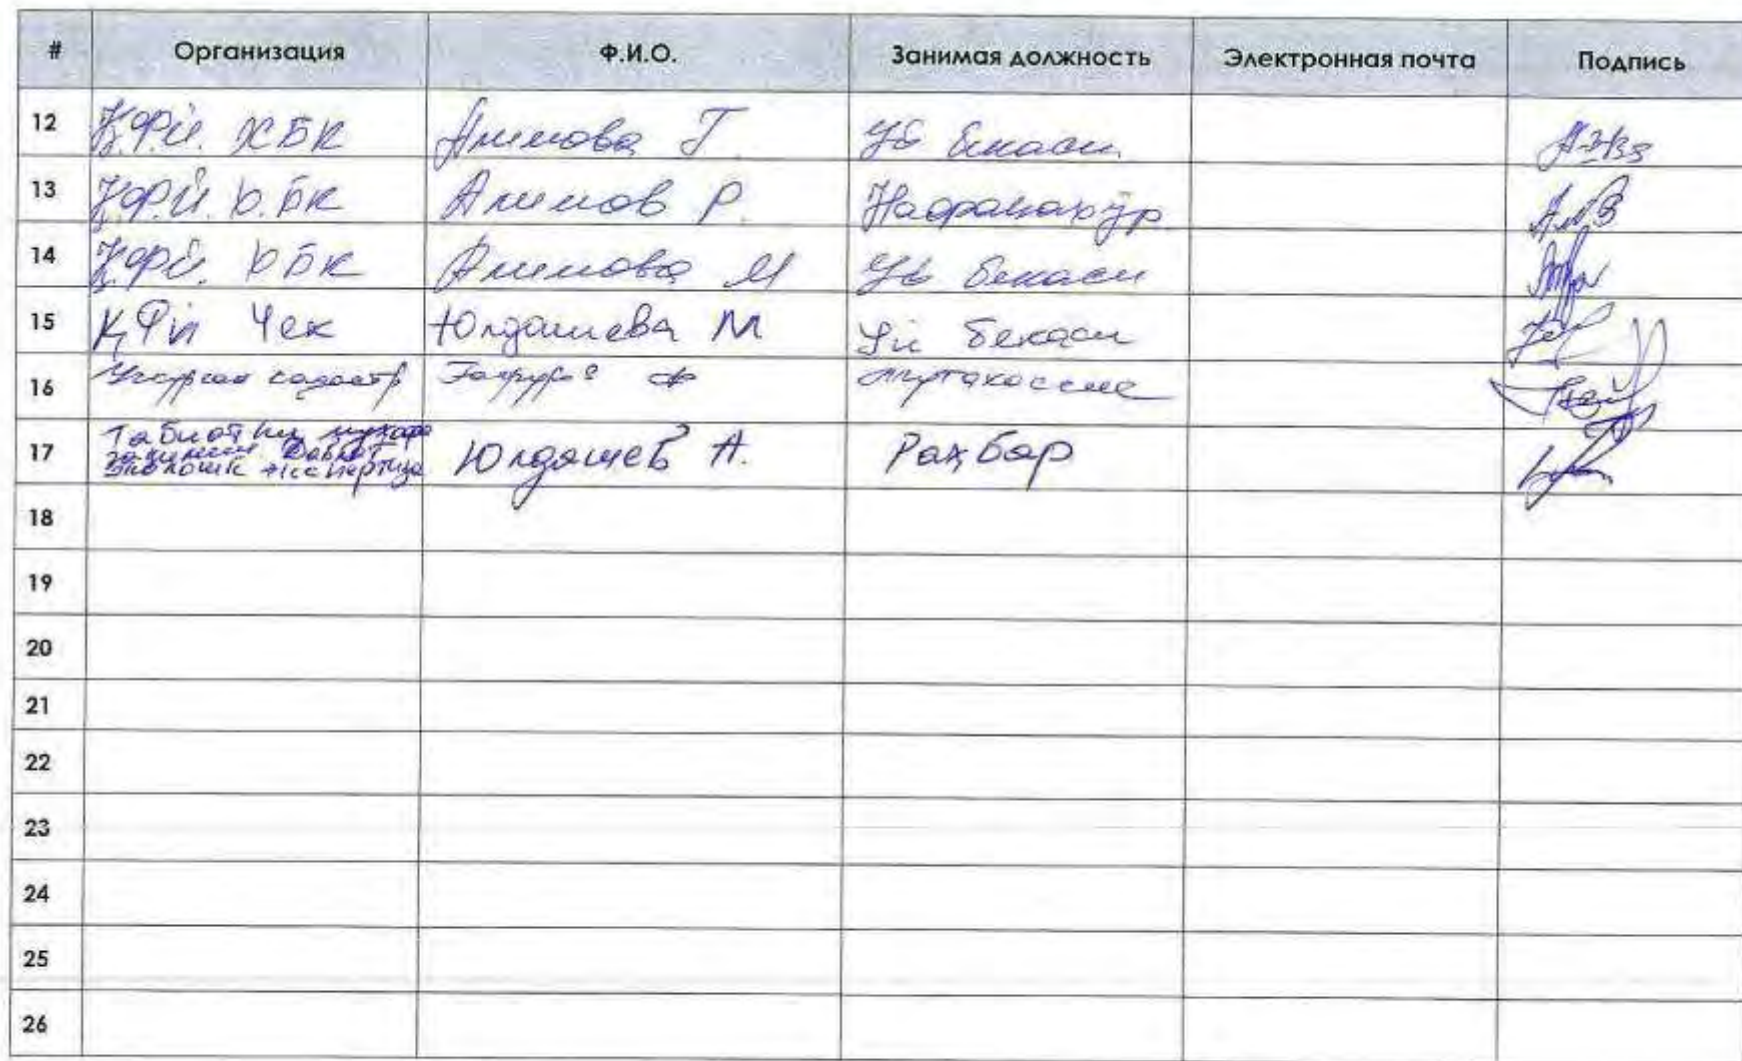 # Организация Ф.И.О. Занимая должность Электронная почта Подпись
12 Қ.Ф.Й. ХБК Алимова Г. Уй бекаси
13 Қ.Ф.Й. Ю.БК Алимов Р. Нафақахўр
14 Қ.Ф.Й. ЮБК Алимова М Уй бекаси
15 ҚФЙ Чек Юлдашева М Уй бекаси
16 кадастр мутахассис
17 Табиатни
Давлат
экспертиза Юлдашев А. Раҳбар
18
19
20
21
22
23
24
25
26